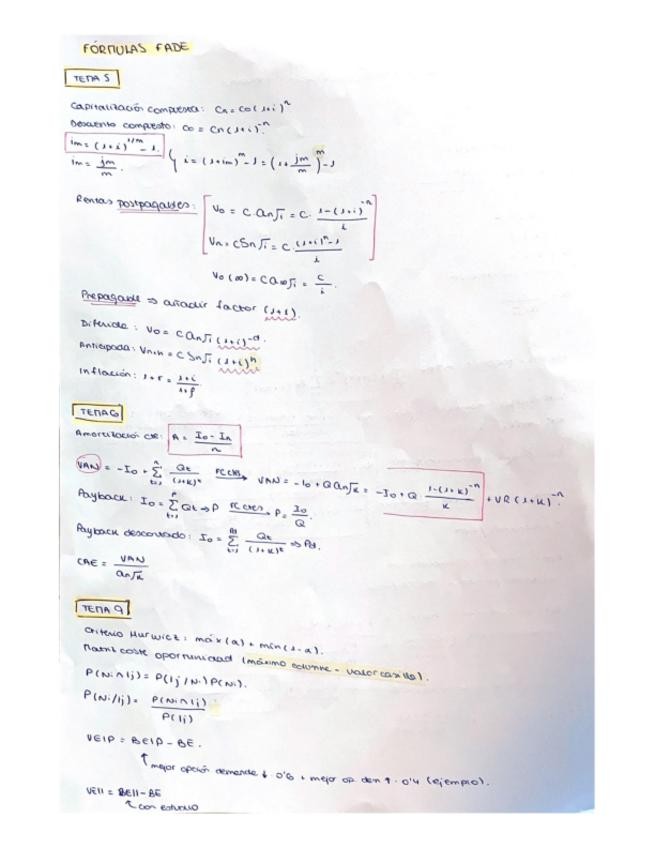 FÓRMULAS FADE
TEMA 5
Capitalización compuesta: Cn = Co (1+i)^n
Descuento compuesto: Co = Cn (1+i)^-n.
im = (1+i)^1/m - 1.
im = jm/m. { i = (1+im)^m - 1 = (1 + jm/m)^m - 1
Rentas postpagables: V0 = C · an⌉i = C · 1-(1+i)^-n / i
Vn = C Sn⌉i = C · (1+i)^n - 1 / i
V0 (∞) = C a∞⌉i = C/i.
Prepagable ⇒ añadir factor (1+i).
Diferida: V0 = C an⌉i (1+i)^-d.
Anticipada: Vn+h = C Sn⌉i (1+i)^h
Inflación: 1+r = 1+i / 1+f
TEMA 6
Amortización cte: A = I0 - In / n
VAN = -I0 + Σ t=1 n Qt / (1+k)^t FC ctes → VAN = -I0 + Q an⌉k = -I0 + Q · 1-(1+k)^-n / k + VR (1+k)^-n.
Payback: I0 = Σ t=1 P Qt ⇒ P FC ctes → P = I0 / Q.
Payback descontado: I0 = Σ t=1 Pd Qt / (1+k)^t ⇒ Pd.
CAE = VAN / an⌉k
TEMA 9
Criterio Hurwicz: máx (a) + mín (1-a).
Matriz coste oportunidad (máximo columna - valor casilla).
P(Ni ∩ Ij) = P(Ij / Ni) P(Ni).
P(Ni/Ij) = P(Ni ∩ Ij) / P(Ij)
VEIP = BEIP - BE.
↑ mejor opción demanda ↓ · 0'6 + mejor op. den ↑ · 0'4 (ejemplo).
VEII = BEII - BE
↑ con estudio